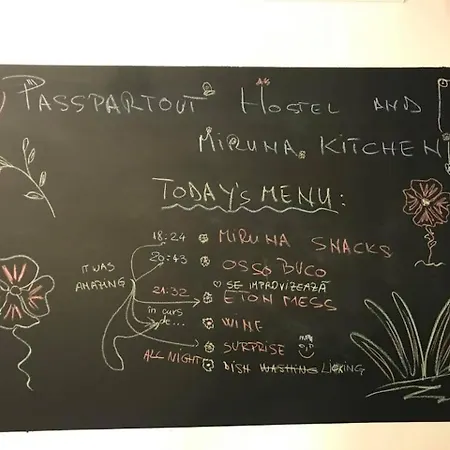 PASSPARTOUT HOSTEL AND
MIRUNA KITCHEN
TODAY'S MENU:
18:24 MIRUNA SNACKS
20:43 OSSO BUCO
IT WAS AMAZING
SE IMPROVIZEAZĂ
21:32 ETON MESS
în curs de...
WINE
SURPRISE
ALL NIGHT DISH WASHING LICKING